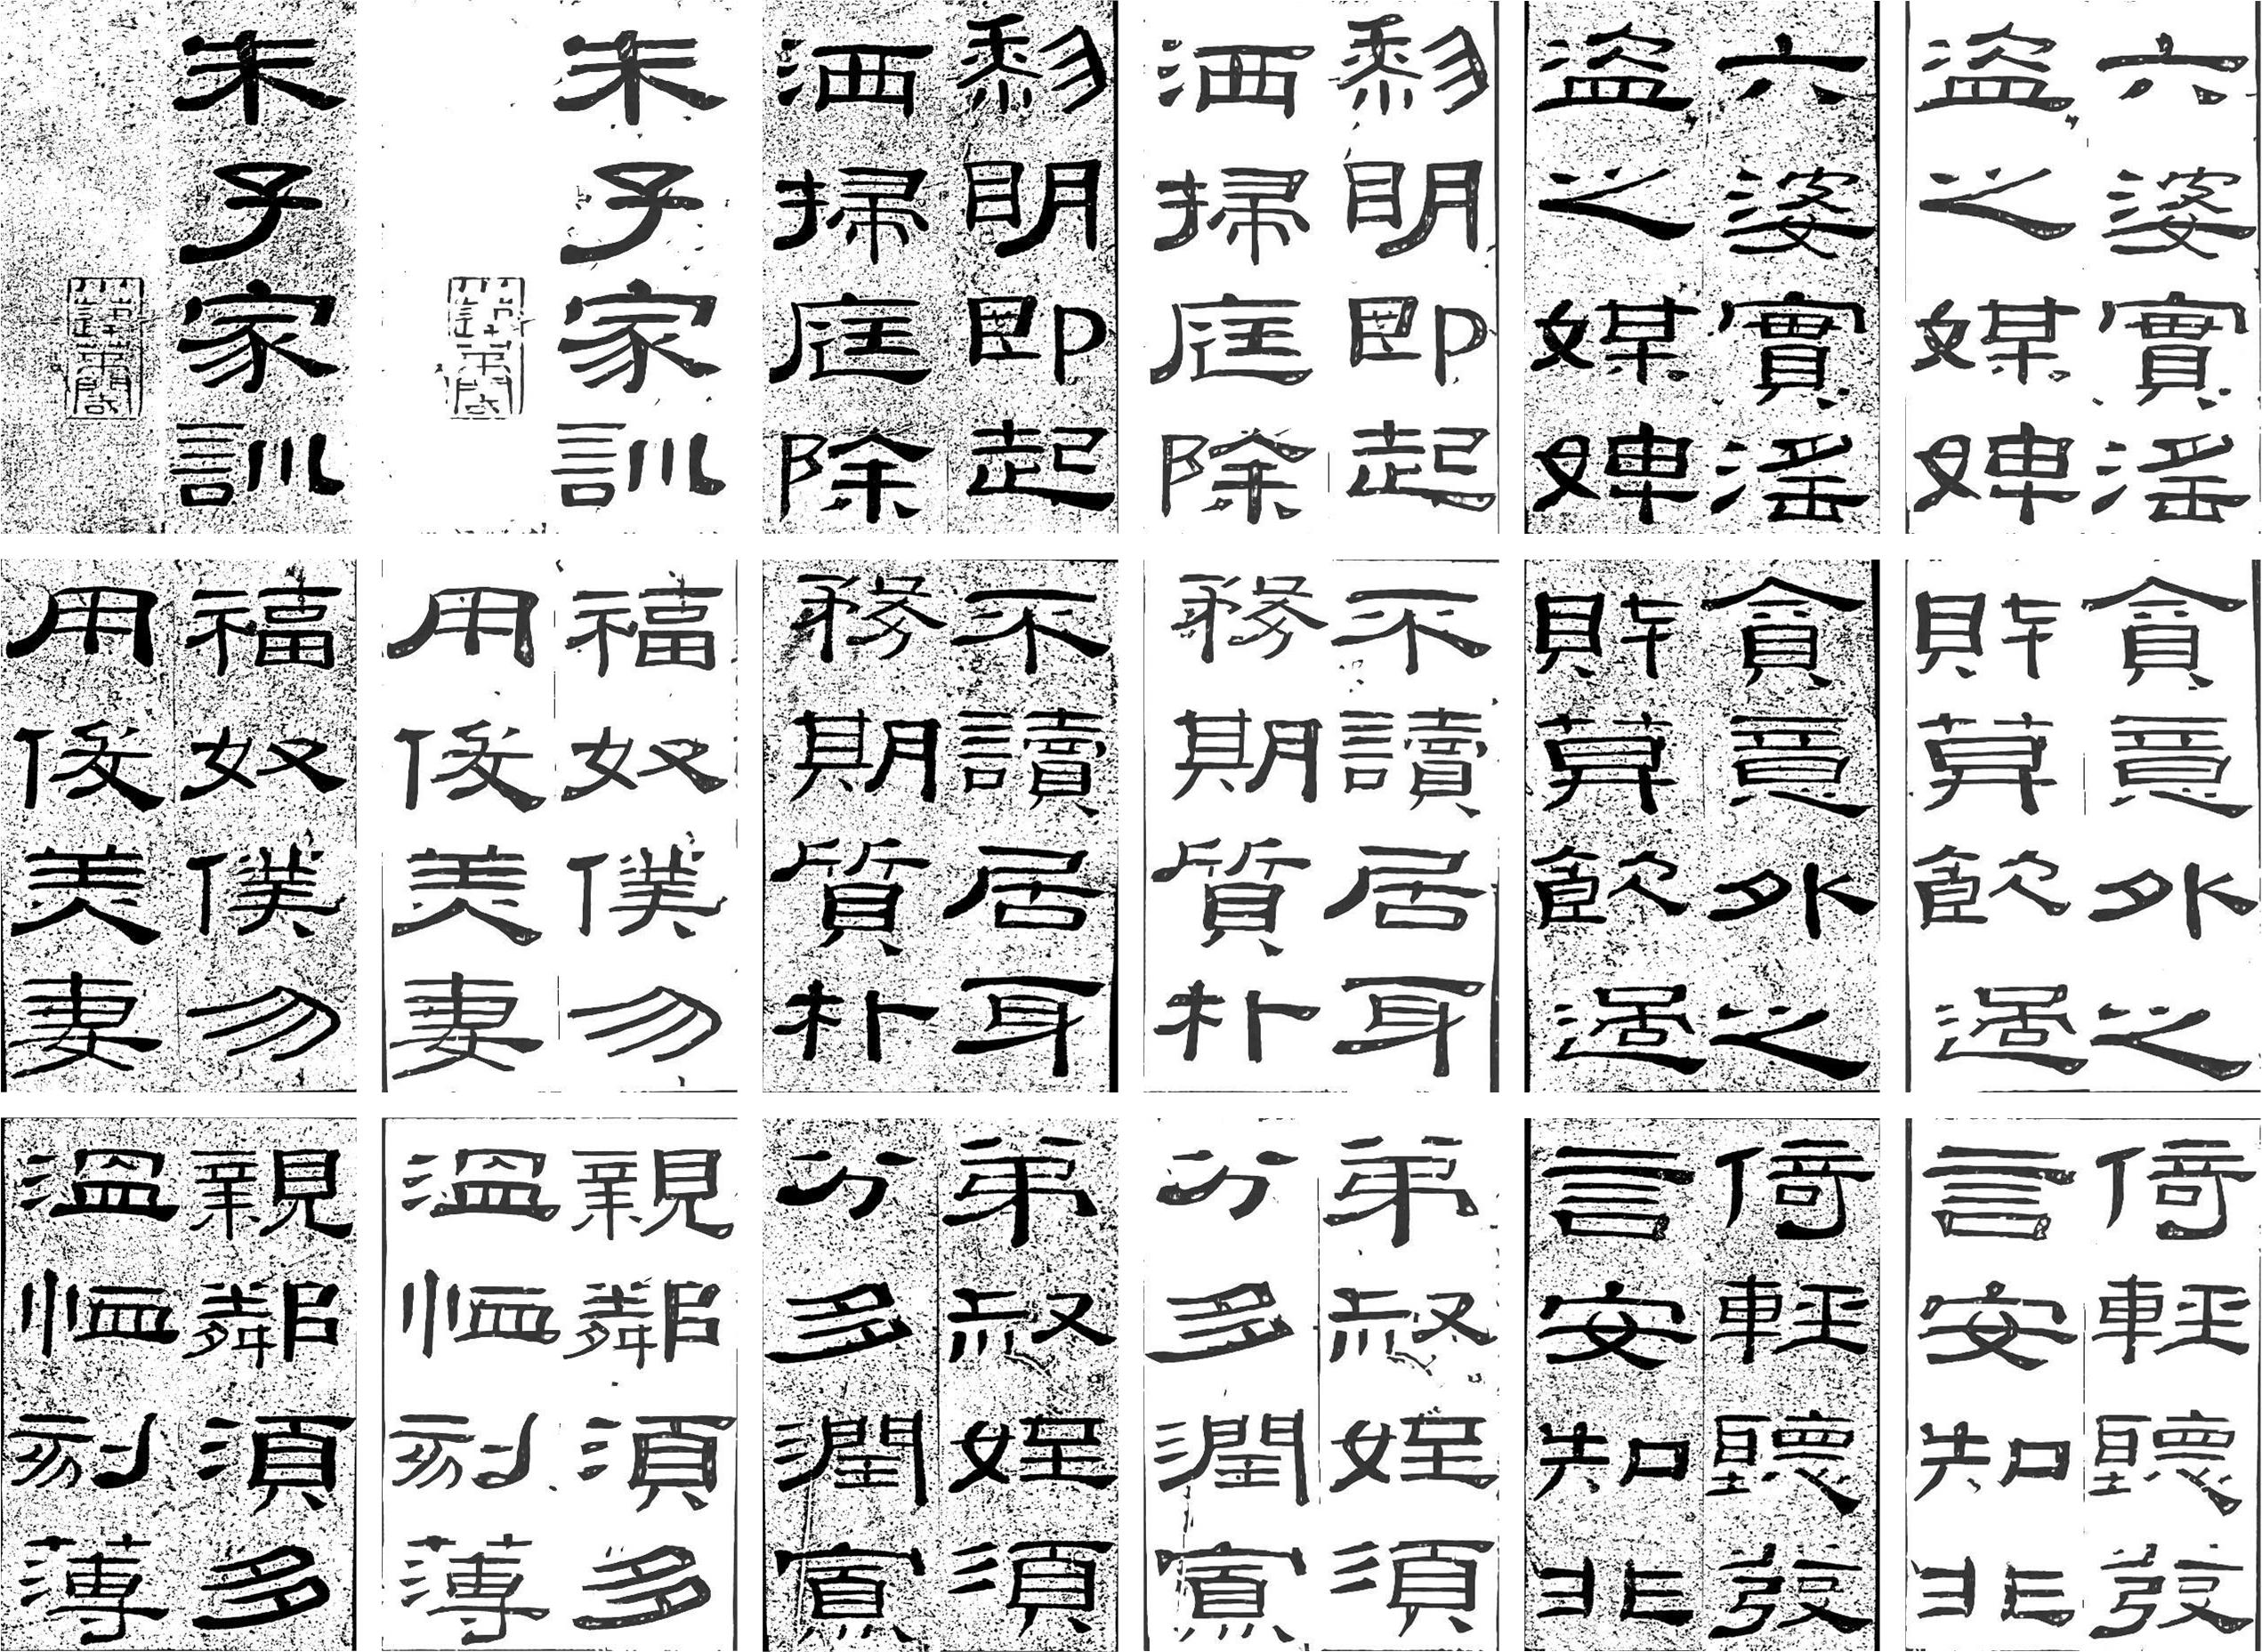 朱子家訓
朱子家訓
黎明即起
洒掃庭除
黎明即起
洒掃庭除
六婆實滛
盜之媒婢
六婆實滛
盜之媒婢
福奴僕勿
用俊美妻
福奴僕勿
用俊美妻
不讀居身
務期質朴
不讀居身
務期質朴
貪意外之
財莫飲過
貪意外之
財莫飲過
親鄰須多
溫恤刻薄
親鄰須多
溫恤刻薄
弟叔姪須
分多潤寡
弟叔姪須
分多潤寡
倚輕聽發
言安知非
倚輕聽發
言安知非